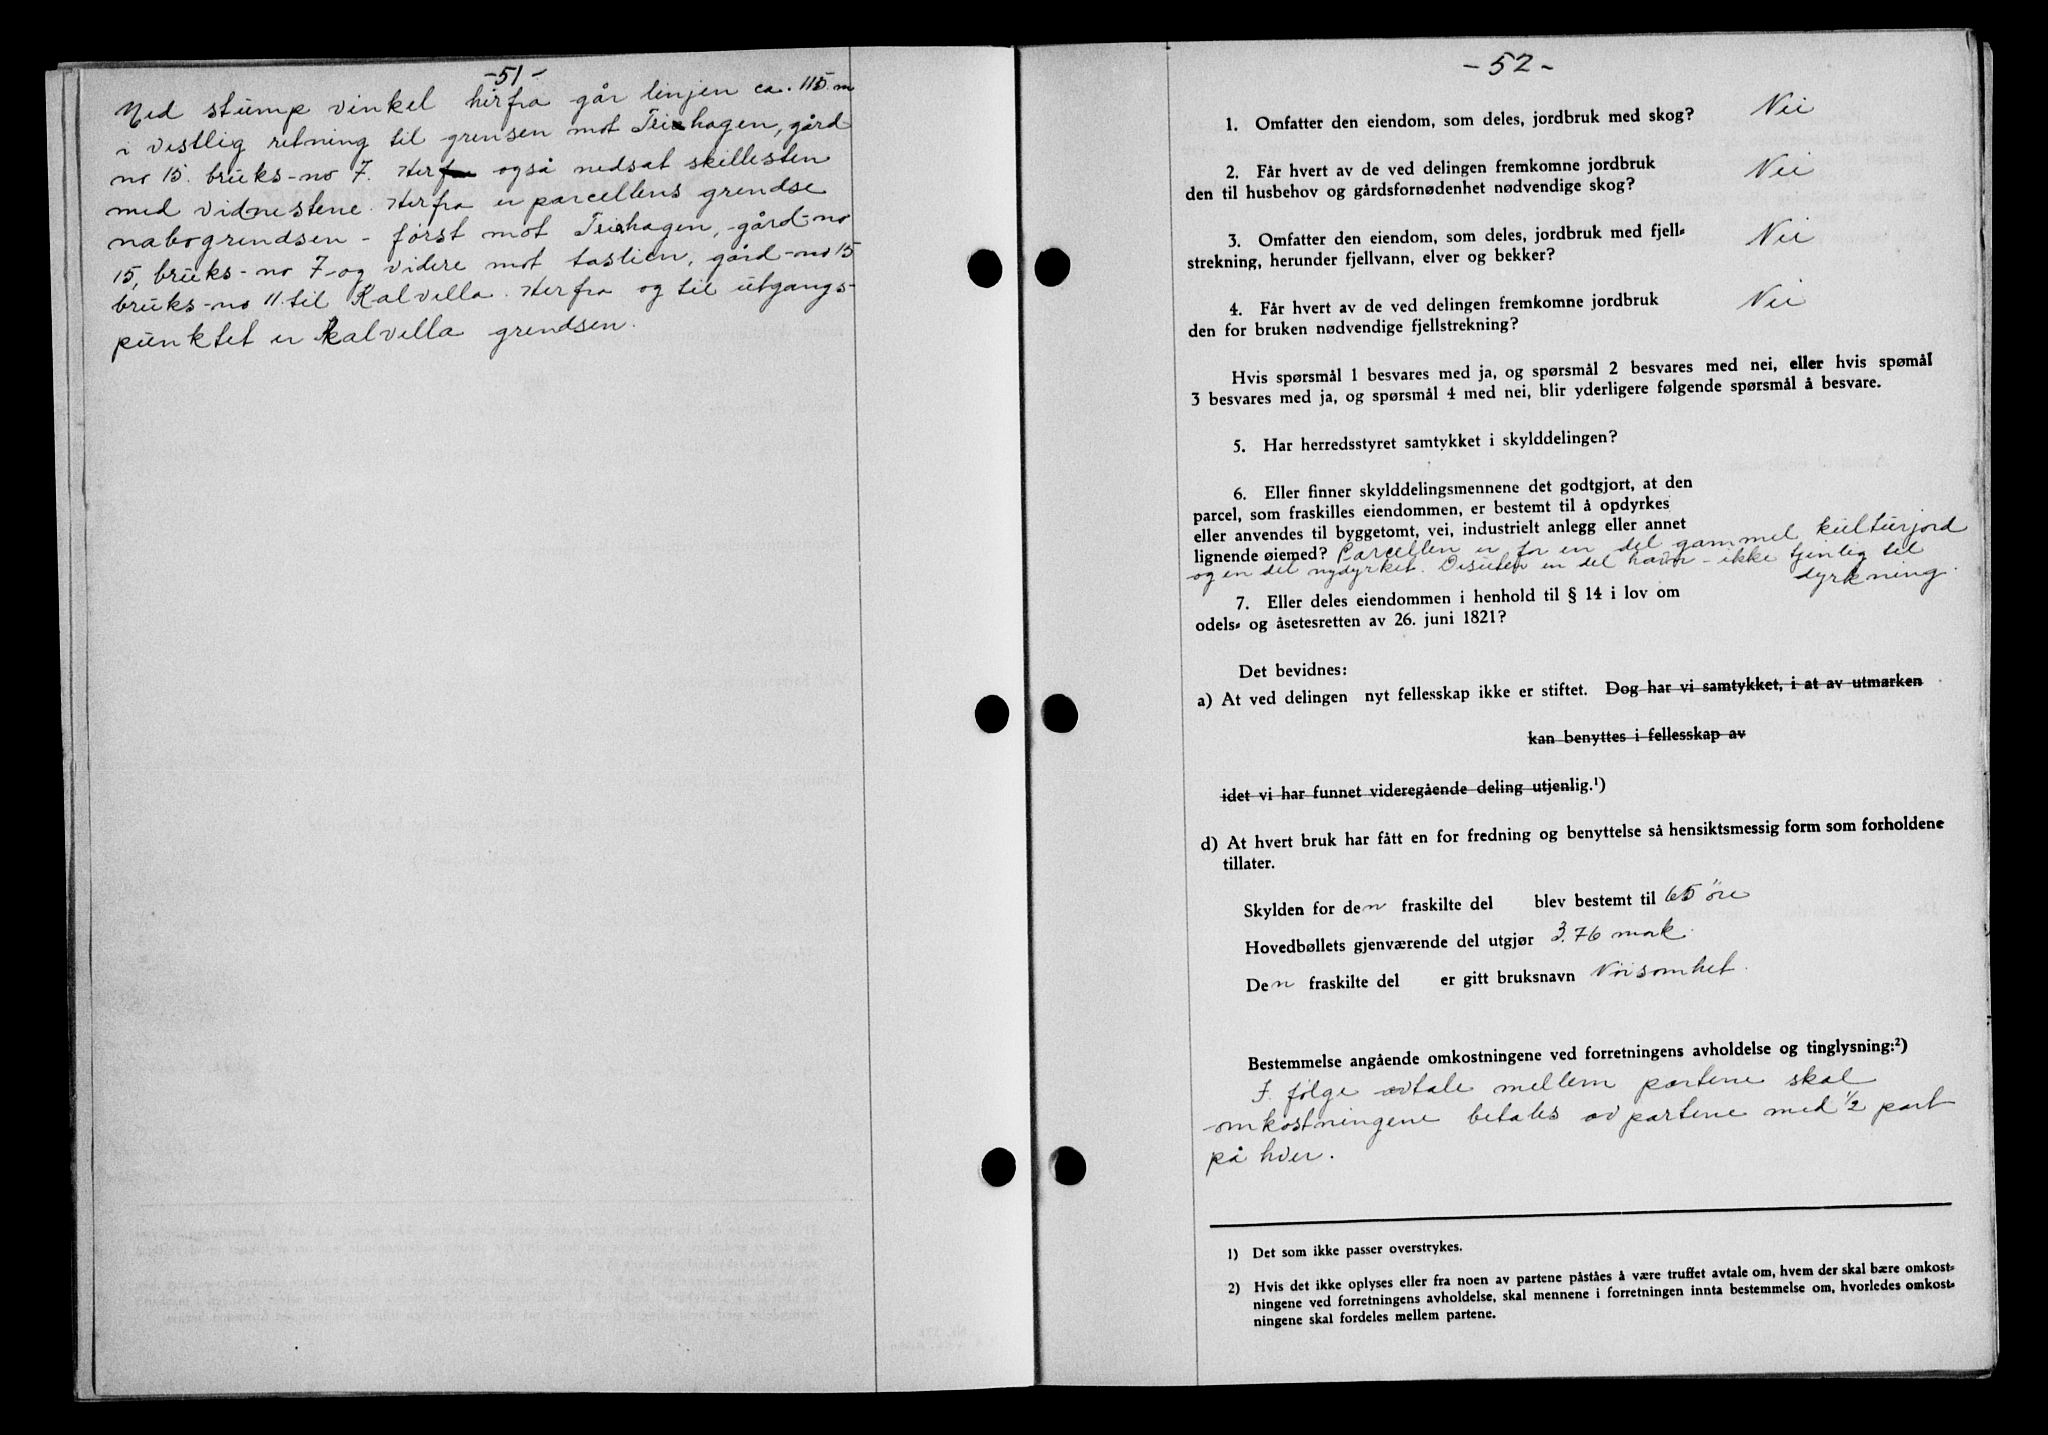 -51-
Med stump vinkel herfra går linjen ca. 115 m
i vestlig retning til grensen mot Teiehagen, gård
no 15. bruks-no 7. Her også nedsat skillesten
med vidnestene. Herfra er parcellens grendse
nabogrendsen - først mot Teiehagen, gård-no
15, bruks-no 7 og videre mot Aaslien, gård-no 15
bruks-no 11. til Kalvella. Herfra og til utgangs-
punktet er Kalvella grendsen.
-52-
1. Omfatter den eiendom, som deles, jordbruk med skog? Nei
2. Får hvert av de ved delingen fremkomne jordbruk
den til husbehov og gårdsfornødenhet nødvendige skog? Nei
3. Omfatter den eiendom, som deles, jordbruk med fjell-
strekning, herunder fjellvann, elver og bekker? Nei
4. Får hvert av de ved delingen fremkomne jordbruk
den for bruken nødvendige fjellstrekning? Nei
Hvis spørsmål 1 besvares med ja, og spørsmål 2 besvares med nei, eller hvis spømål
3 besvares med ja, og spørsmål 4 med nei, blir yderligere følgende spørsmål å besvare.
5. Har herredsstyret samtykket i skylddelingen?
6. Eller finner skylddelingsmennene det godtgjort, at den
parcel, som fraskilles eiendommen, er bestemt til å opdyrkes
eller anvendes til byggetomt, vei, industrielt anlegg eller annet
lignende øiemed? Parcellen er for en del gammel kulturjord
og en del nydyrket. Desuten en del havn - ikke tjenlig til
dyrkning.
7. Eller deles eiendommen i henhold til § 14 i lov om
odels- og åsetesretten av 26. juni 1821?
Det bevidnes:
a) At ved delingen nyt fellesskap ikke er stiftet. Dog har vi samtykket, i at av utmarken
kan benyttes i fellesskap av
idet vi har funnet videregående deling utjenlig.¹)
d) At hvert bruk har fått en for fredning og benyttelse så hensiktsmessig form som forholdene
tillater.
Skylden for den fraskilte del blev bestemt til 65 øre
Hovedbøllets gjenværende del utgjør 3.76 mark.
Den fraskilte del er gitt bruksnavn Nøisomhet.
Bestemmelse angående omkostningene ved forretningens avholdelse og tinglysning:²)
I følge avtale mellem partene skal
omkostningene betales av partene med 1/2 part
på hver.
1) Det som ikke passer overstrykes.
2) Hvis det ikke oplyses eller fra noen av partene påståes å være truffet avtale om, hvem der skal bære omkost-
ningene ved forretningens avholdelse, skal mennene i forretningen innta bestemmelse om, hvorledes omkost-
ningene skal fordeles mellem partene.